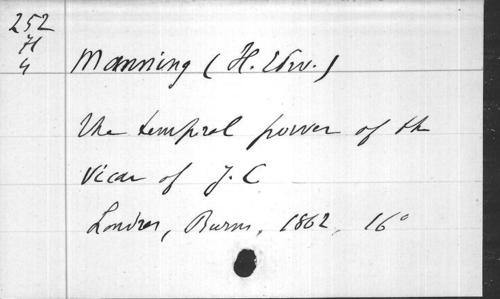 252
H
4
Manning (H. Edw.)
The temporal power of th
Vicar of J. C
Londres, Burns, 1862, 16°